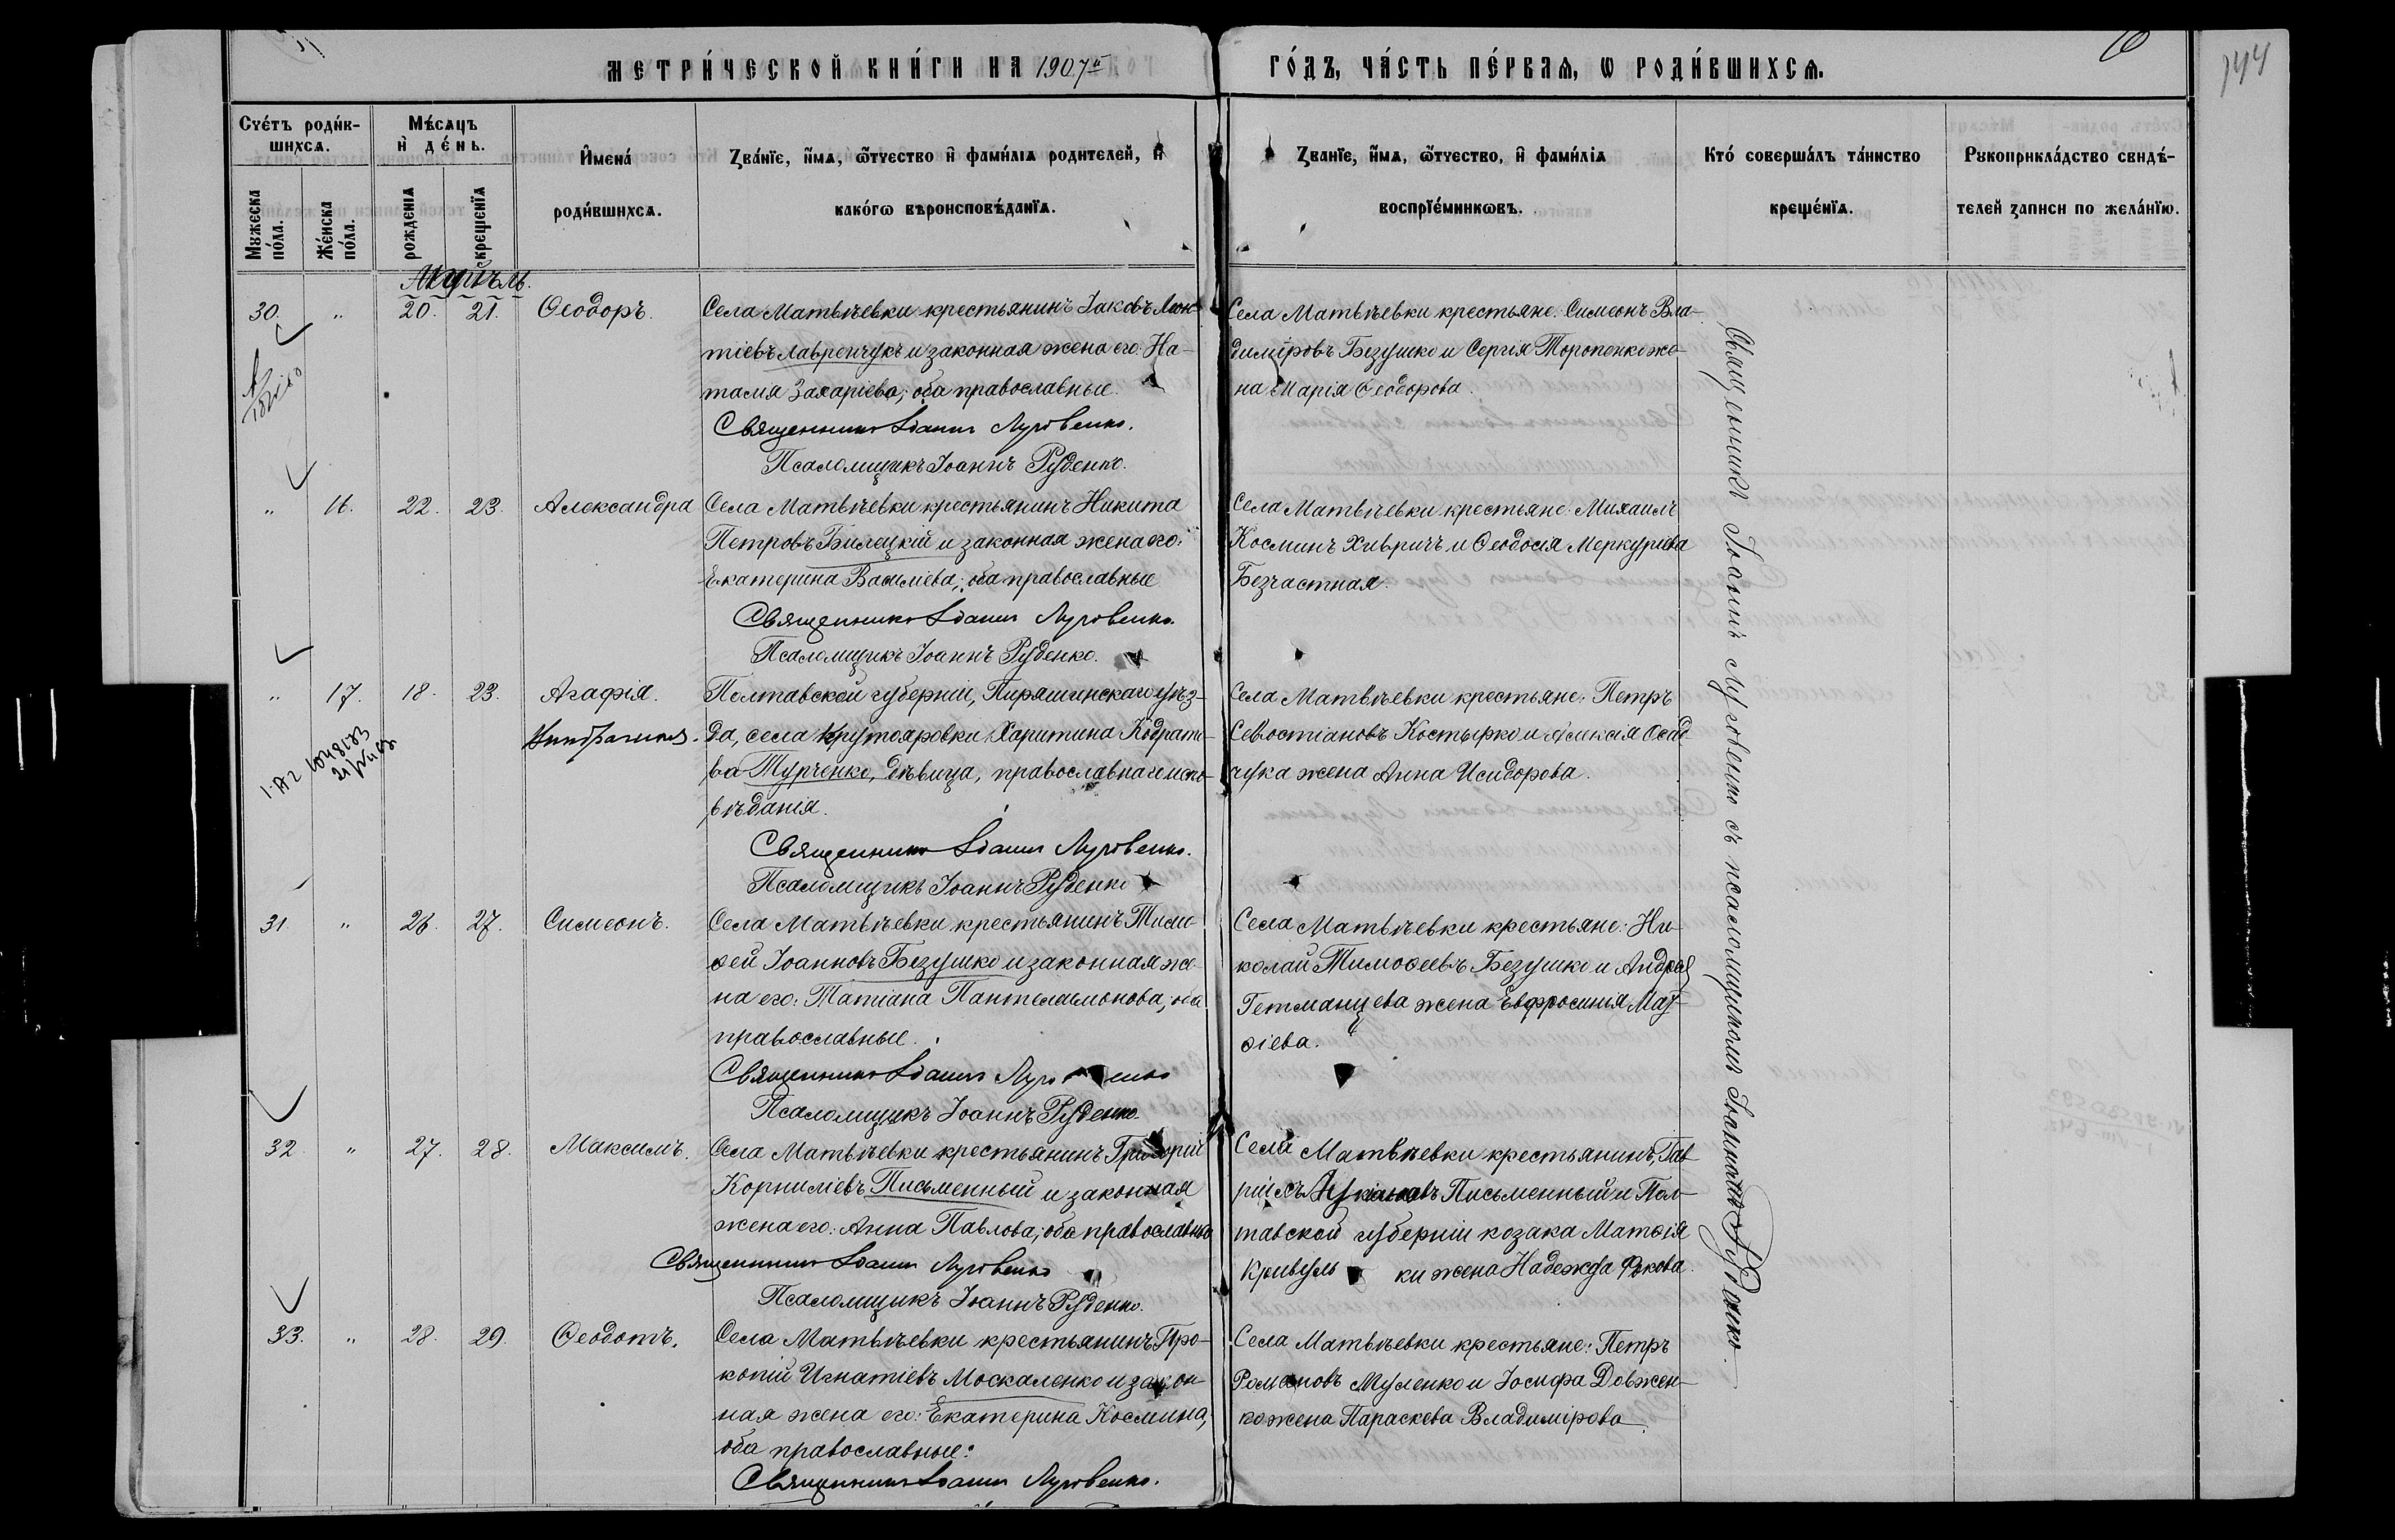 МЕТРИ́ЧЕСКОЙ КНИ́ГИ НА 1907й ГО́ДЪ, ЧА́СТЬ ПЕ́РВАѦ, Ѡ РОДИ́ВШИХСѦ.
144
Сче́тъ роди́в-
шихсѧ.
Мꙋжеска по́ла.
Же́нска по́ла.
Мѣ́сѧцъ
и де́нь.
рожденїѧ
крещенїѧ
Имена́
роди́вшихсѧ.
Зва́нїе, и́мѧ, ѻ́тчество и фами́лїѧ родителей, и
како́гѡ вѣроисповѣ́данїѧ.
Зва́нїе, и́мѧ, ѻ́тчество, и фами́лїѧ
воспрїе́мникѡвъ.
Кто́ соверша́лъ та́инство
креще́нїѧ.
Рꙋкоприкла́дство свидѣ́-
телей записи по жела́нїю.
30. " 20. 21. Ѳеодоръ.
Села Матвѣевки крестьянинъ Іаковъ Леон-
тіевъ Лавренчукъ и законная жена его: На-
талия Захаріева; оба православные.
Священникъ Іоаннъ Луговенко.
Псаломщикъ Іоаннъ Руденко.
Села Матвѣевки крестьяне: Симеонъ Вла-
диміровъ Безушко и Сергія Торопенко же-
на Марія Ѳеодорова.
" 16. 22. 23. Александра
Села Матвѣевки крестьянинъ Никита
Петровъ Билецкій и законная жена его:
Екатерина Василіева; оба православные
Священникъ Іоаннъ Луговенко.
Псаломщикъ Іоаннъ Руденко.
Села Матвѣевки крестьяне: Михаилъ
Косминъ Хивричъ и Ѳеодосія Меркуріева
Безчастная.
" 17. 18. 23. Агафія.
Полтавской губерніи, Пирятинскаго уѣз-
да, села Крутояровки Харитина Кодрато-
ва Турченко, дѣвица, православнаго испо-
вѣданія.
Священникъ Іоаннъ Луговенко.
Псаломщикъ Іоаннъ Руденко
Села Матвѣевки крестьяне: Петръ
Севостіановъ Костырко и Алексія
чука жена Анна Исидорова.
31. " 26. 27. Симеонъ.
Села Матвѣевки крестьянинъ Тимо-
ѳей Іоанновъ Безушко и законная же-
на его: Татіана Пантелеимонова; оба
православные.
Священникъ Іоаннъ Луговенко
Псаломщикъ Іоаннъ Руденко.
Села Матвѣевки крестьяне: Ни-
колай Тимоѳеевъ Безушко и Андрея
Гетманцева жена Евфросинія Мат-
ѳіева.
32. " 27. 28. Максимъ.
Села Матвѣевки крестьянинъ Григорій
Корниліевъ Письменный и законная
жена его: Анна Павлова; оба православные
Священникъ Іоаннъ Луговенко
Псаломщикъ Іоаннъ Руденко.
Села Матвѣевки крестьянинъ, Гав-
ріилъ Письменный и Пол-
тавской губерніи козака Матѳія
Кривуль ки жена Надежда
33. " 28. 29. Ѳеодотъ.
Села Матвѣевки крестьянинъ Про-
копій Игнатіевъ Москаленко и закон-
ная жена его: Екатерина Космина,
оба православные:
Священникъ Іоаннъ Луговенко.
Села Матвѣевки крестьяне: Петръ
Романовъ Муленко и Іосифа Довжен-
ко жена Параскева Владимірова.
Священникъ Іоаннъ Луговенко съ псаломщикомъ Іоанномъ Руденко.